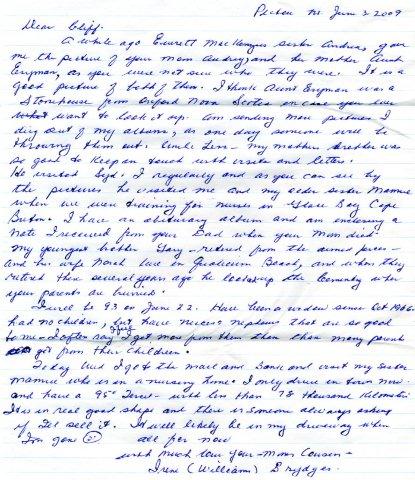 Pictou NS June 3 2009
Dear Cliff:
A while ago Everett MacKenzies sister Andrea gave
me the picture of your Mom Audrey, and her Mother Aunt
as you were not sure who they were. It is a
good picture of both of them. I think Aunt was a
Storehouse from Oxford Nova Scotia in case you ever
want to look it up. Am sending more pictures I
dug out of my albums, as one day someone will be
throwing them out. Uncle my mothers brother was
so good to keep in touch with visits and letters.
He visited regularly and as you can see by
the pictures he visited me and my older sister Mamie
when we were training for nurses in Glace Bay Cape
Breton. I have an obituary album and am enclosing a
note I received from your Dad when your Mom died.
My youngest brother Gary - retired from the armed forces -
and his wife live in Qualicum Beach, and when they
retired there several years ago he looked up the Cemetry where
your parents are buried.
I will be 93 on June 22. Have been a widow since Oct 1966.
had no children, but have nieces nephews that are so good
to me. I often say I get more from them than many parents
get from their children.
Today had I go to the mail and Bank and visit my sister
Mamie who is in a nursing home. I only drive in town now -
and have a 95 - with less than 78 thousand Kilometers
It is in real good shape and there is someone always asking
if I'll sell it. It will likely be in my driveway when
I'm gone all for now
with much love your Mom Cousin -
Irene (Williams) Brydges.